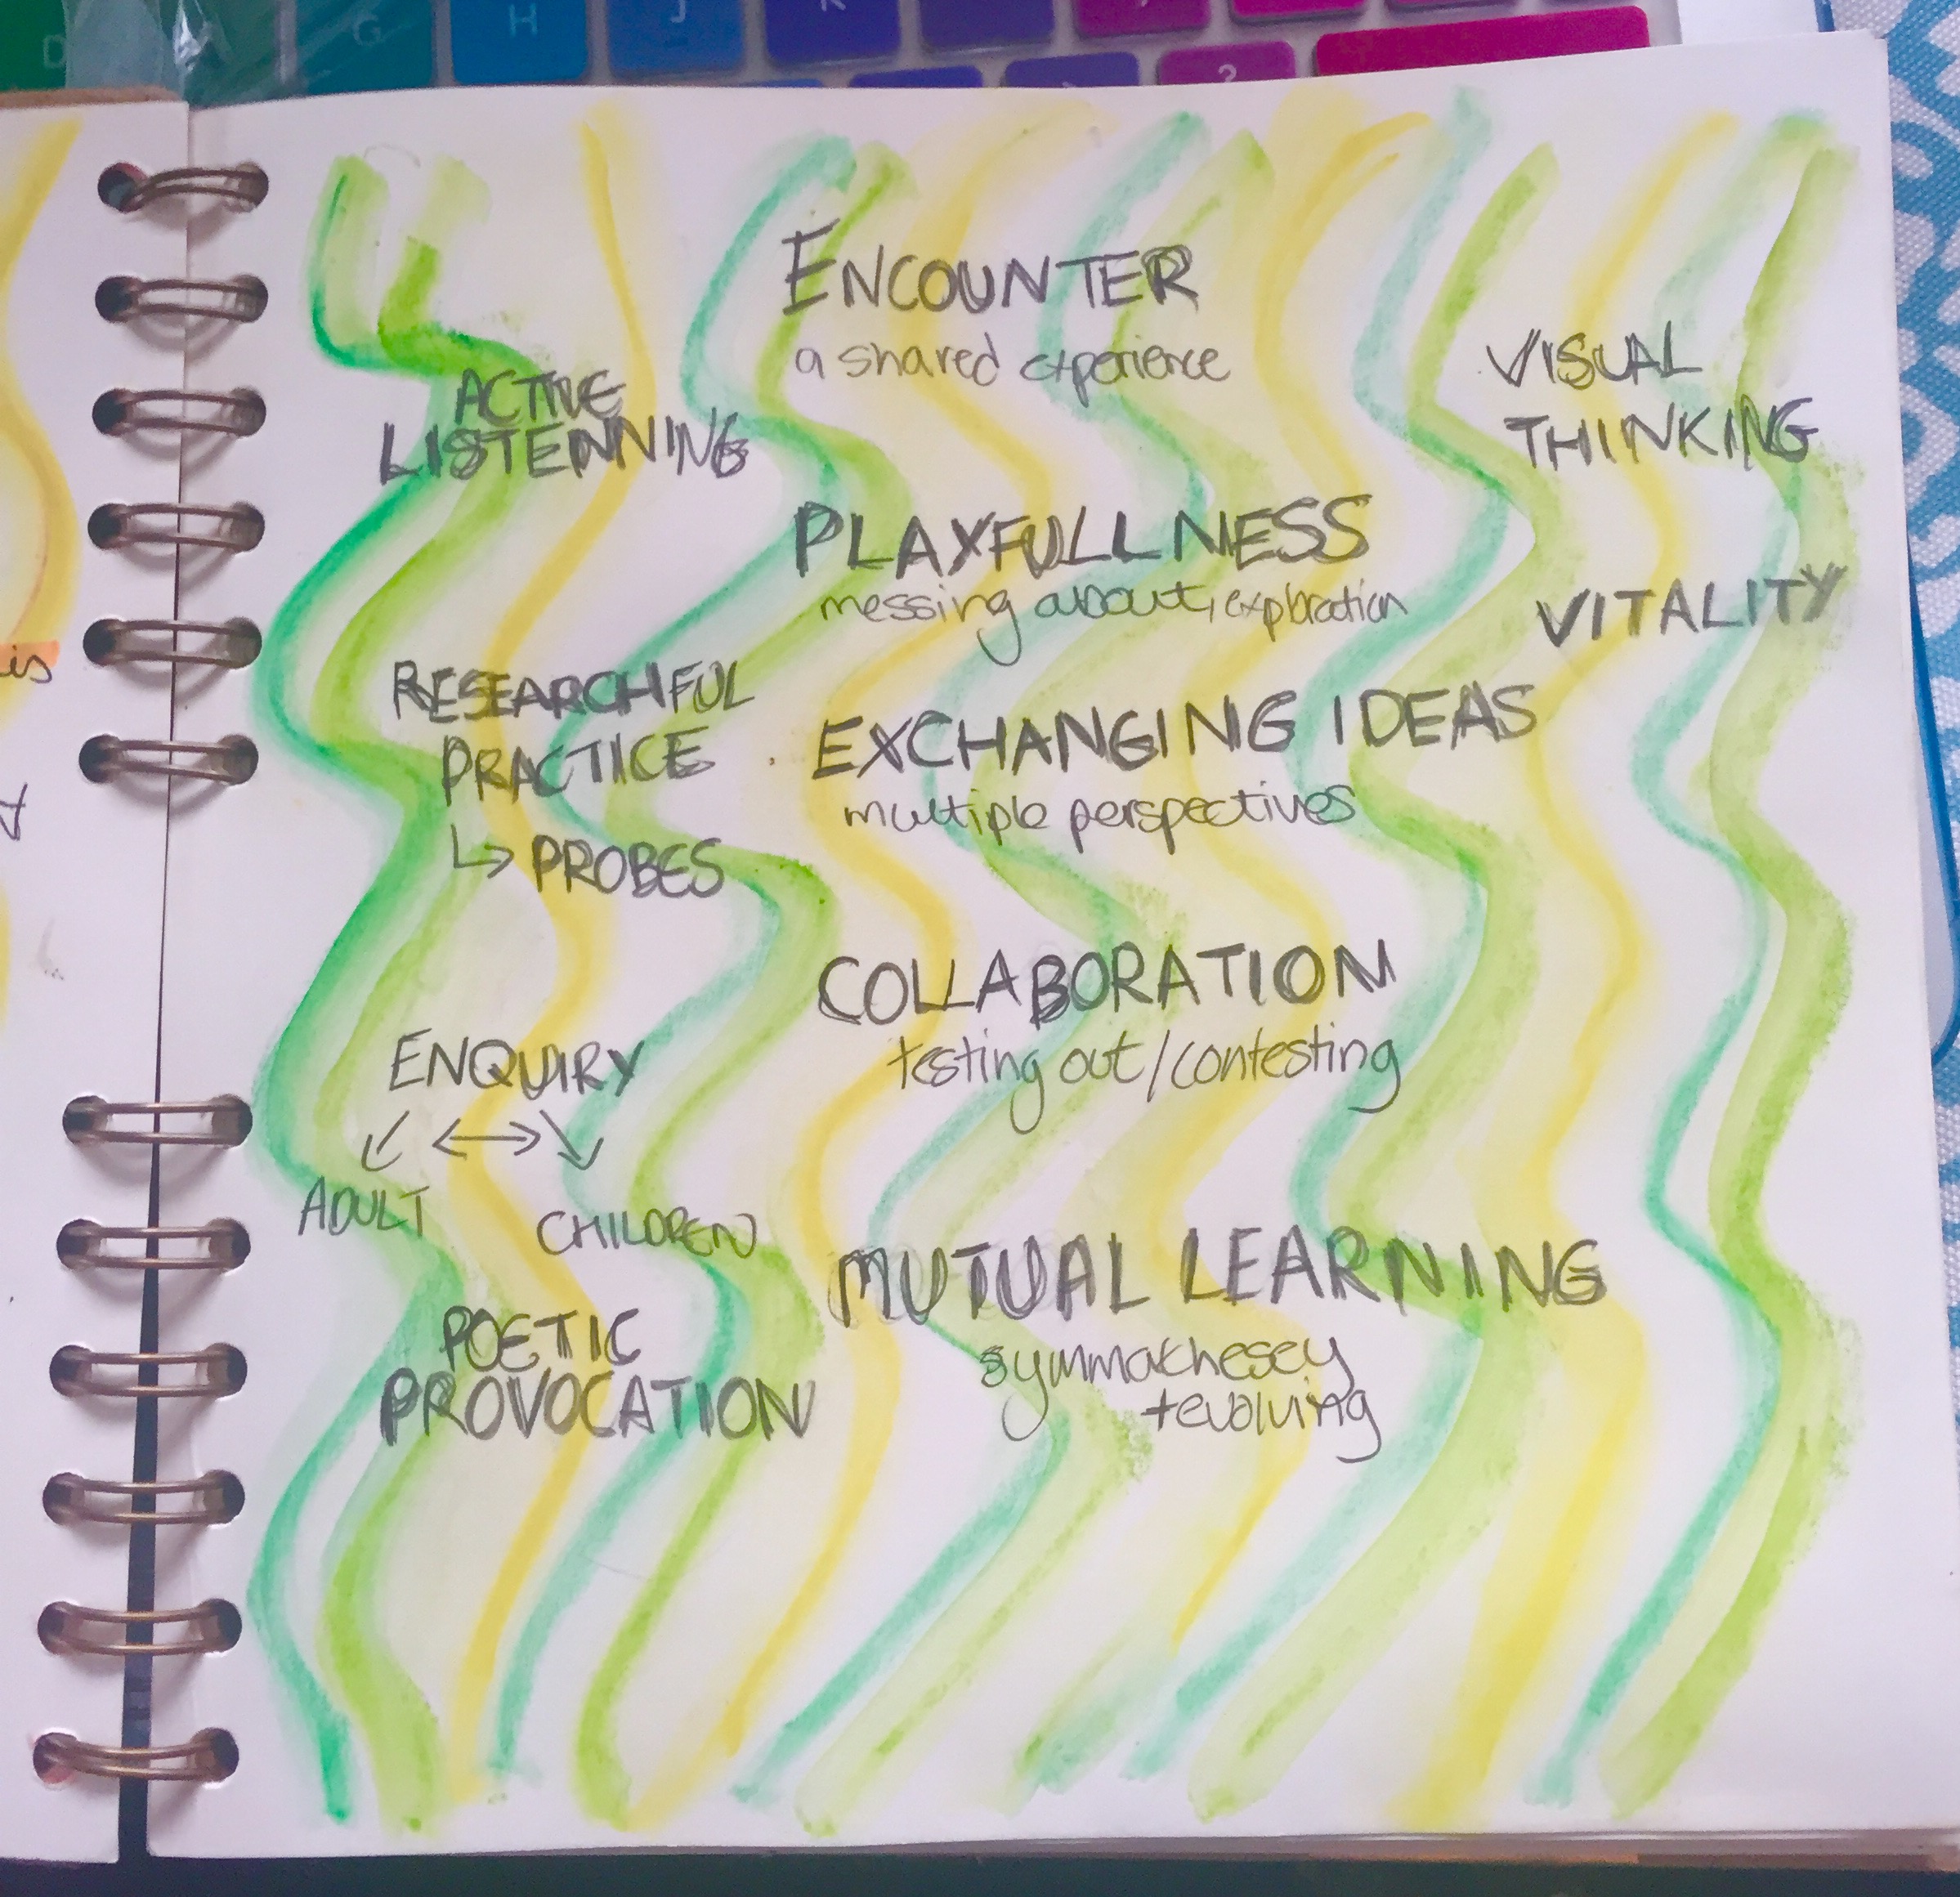 D G H J K
?
is
ENCOUNTER
a shared experience
ACTIVE
LISTENNING
VISUAL
THINKING
PLAYFULLNESS
messing about, exploration
VITALITY
RESEARCHFUL
PRACTICE
↳ PROBES
EXCHANGING IDEAS
multiple perspectives
COLLABORATION
testing out/contesting
ENQUIRY
↙ ↔ ↘
ADULT
CHILDREN
MUTUAL LEARNING
symmathesey
+evolving
POETIC
PROVOCATION